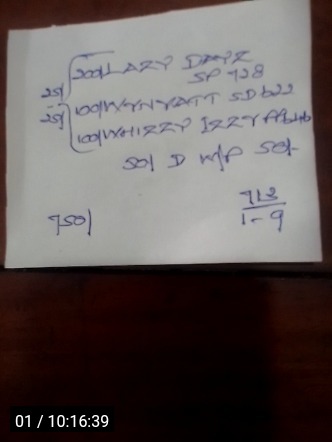 200/ LAZY DAYZ
SP 728
25/
25/
100/ WYNYATT SD 622
100/ WHIZZY IZZY
50/ D W/P 50/-
750/
713
1-9
01 / 10:16:39